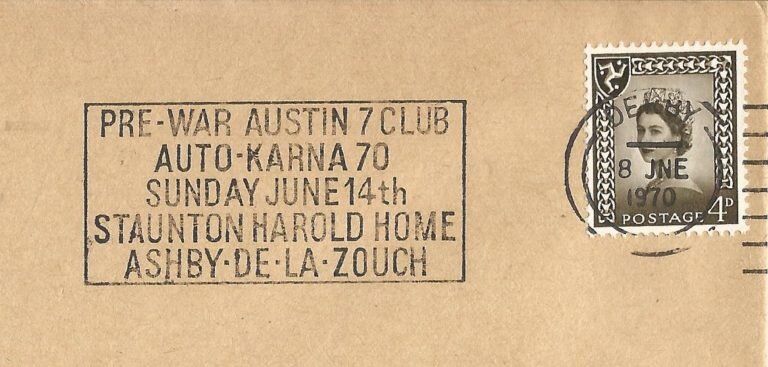 PRE-WAR AUSTIN 7 CLUB
AUTO-KARNA 70
SUNDAY JUNE 14th
STAUNTON HAROLD HOME
ASHBY·DE·LA·ZOUCH
DERBY
8 JNE
1970
POSTAGE 4D